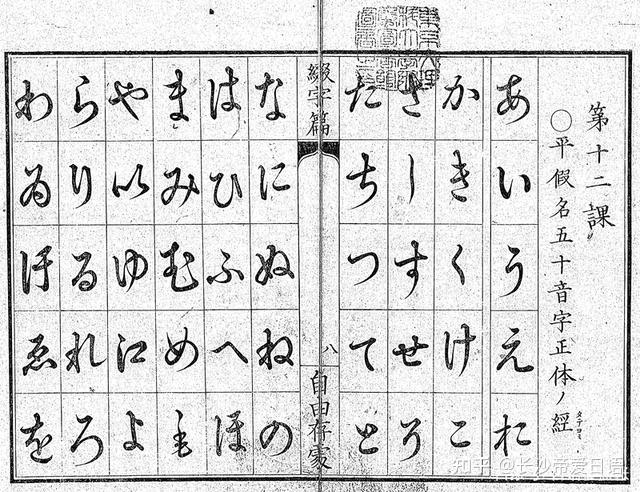 第十二課
〇平假名五十音字正体ノ經
タテヨミ
あいうえお
かきくけこ
さしすせそ
たちつてと
綴字篇
八
なにぬねの
はひふへほ
まみむめも
や以ゆ江よ
らりるれろ
わゐ汙ゑを
知乎 @长沙帝爱日语